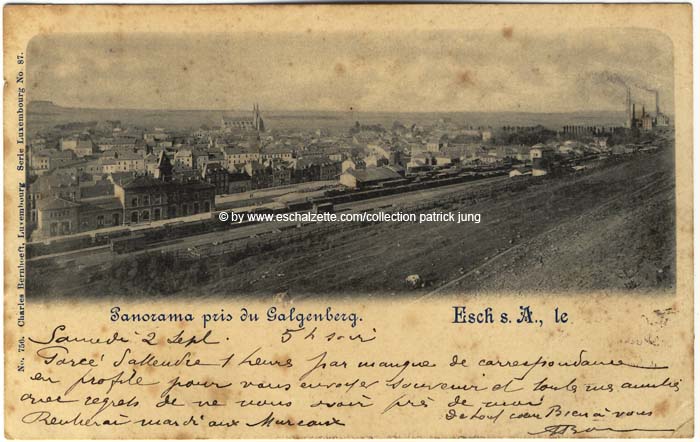 No. 756. Charles Bernhoeft, Luxembourg Serie Luxembourg No. 87.
© by www.eschalzette.com/collection patrick jung
Panorama pris du Galgenberg.
Esch s. A., le
Samedi 2 Sept. 5 h soir
Forcé d'attendre 1 heure par manque de correspondance
en profite pour vous envoyer souvenir et toute mes amitiés
avec regrets de ne vous avoir près de moi
Rentrerai mardi aux Mureaux
de tout cœur Bien à vous